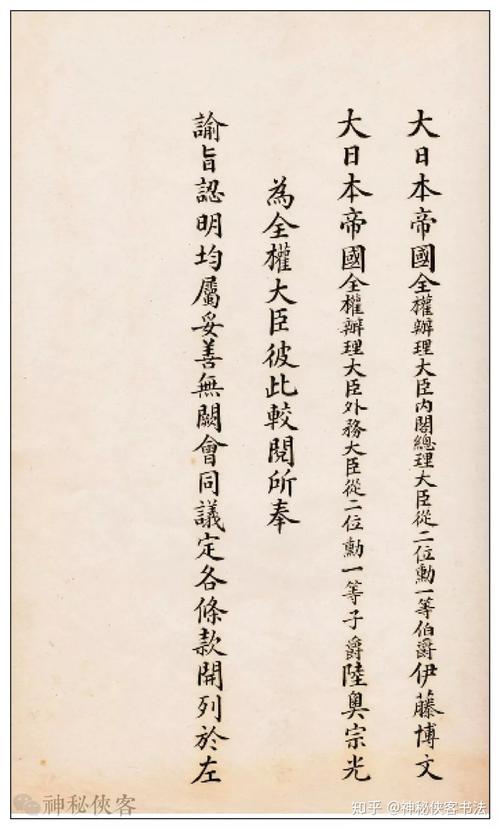 大日本帝國全權辦理大臣內閣總理大臣從二位勳一等伯爵伊藤博文
大日本帝國全權辦理大臣外務大臣從二位勳一等子爵陸奧宗光
為全權大臣彼此較閱所奉
諭旨認明均屬妥善無闕會同議定各條款開列於左
神秘侠客
知乎 @神秘侠客书法